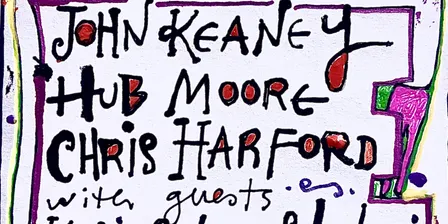 JOHN KEANEY
HUB MOORE
CHRIS HARFORD
with guests